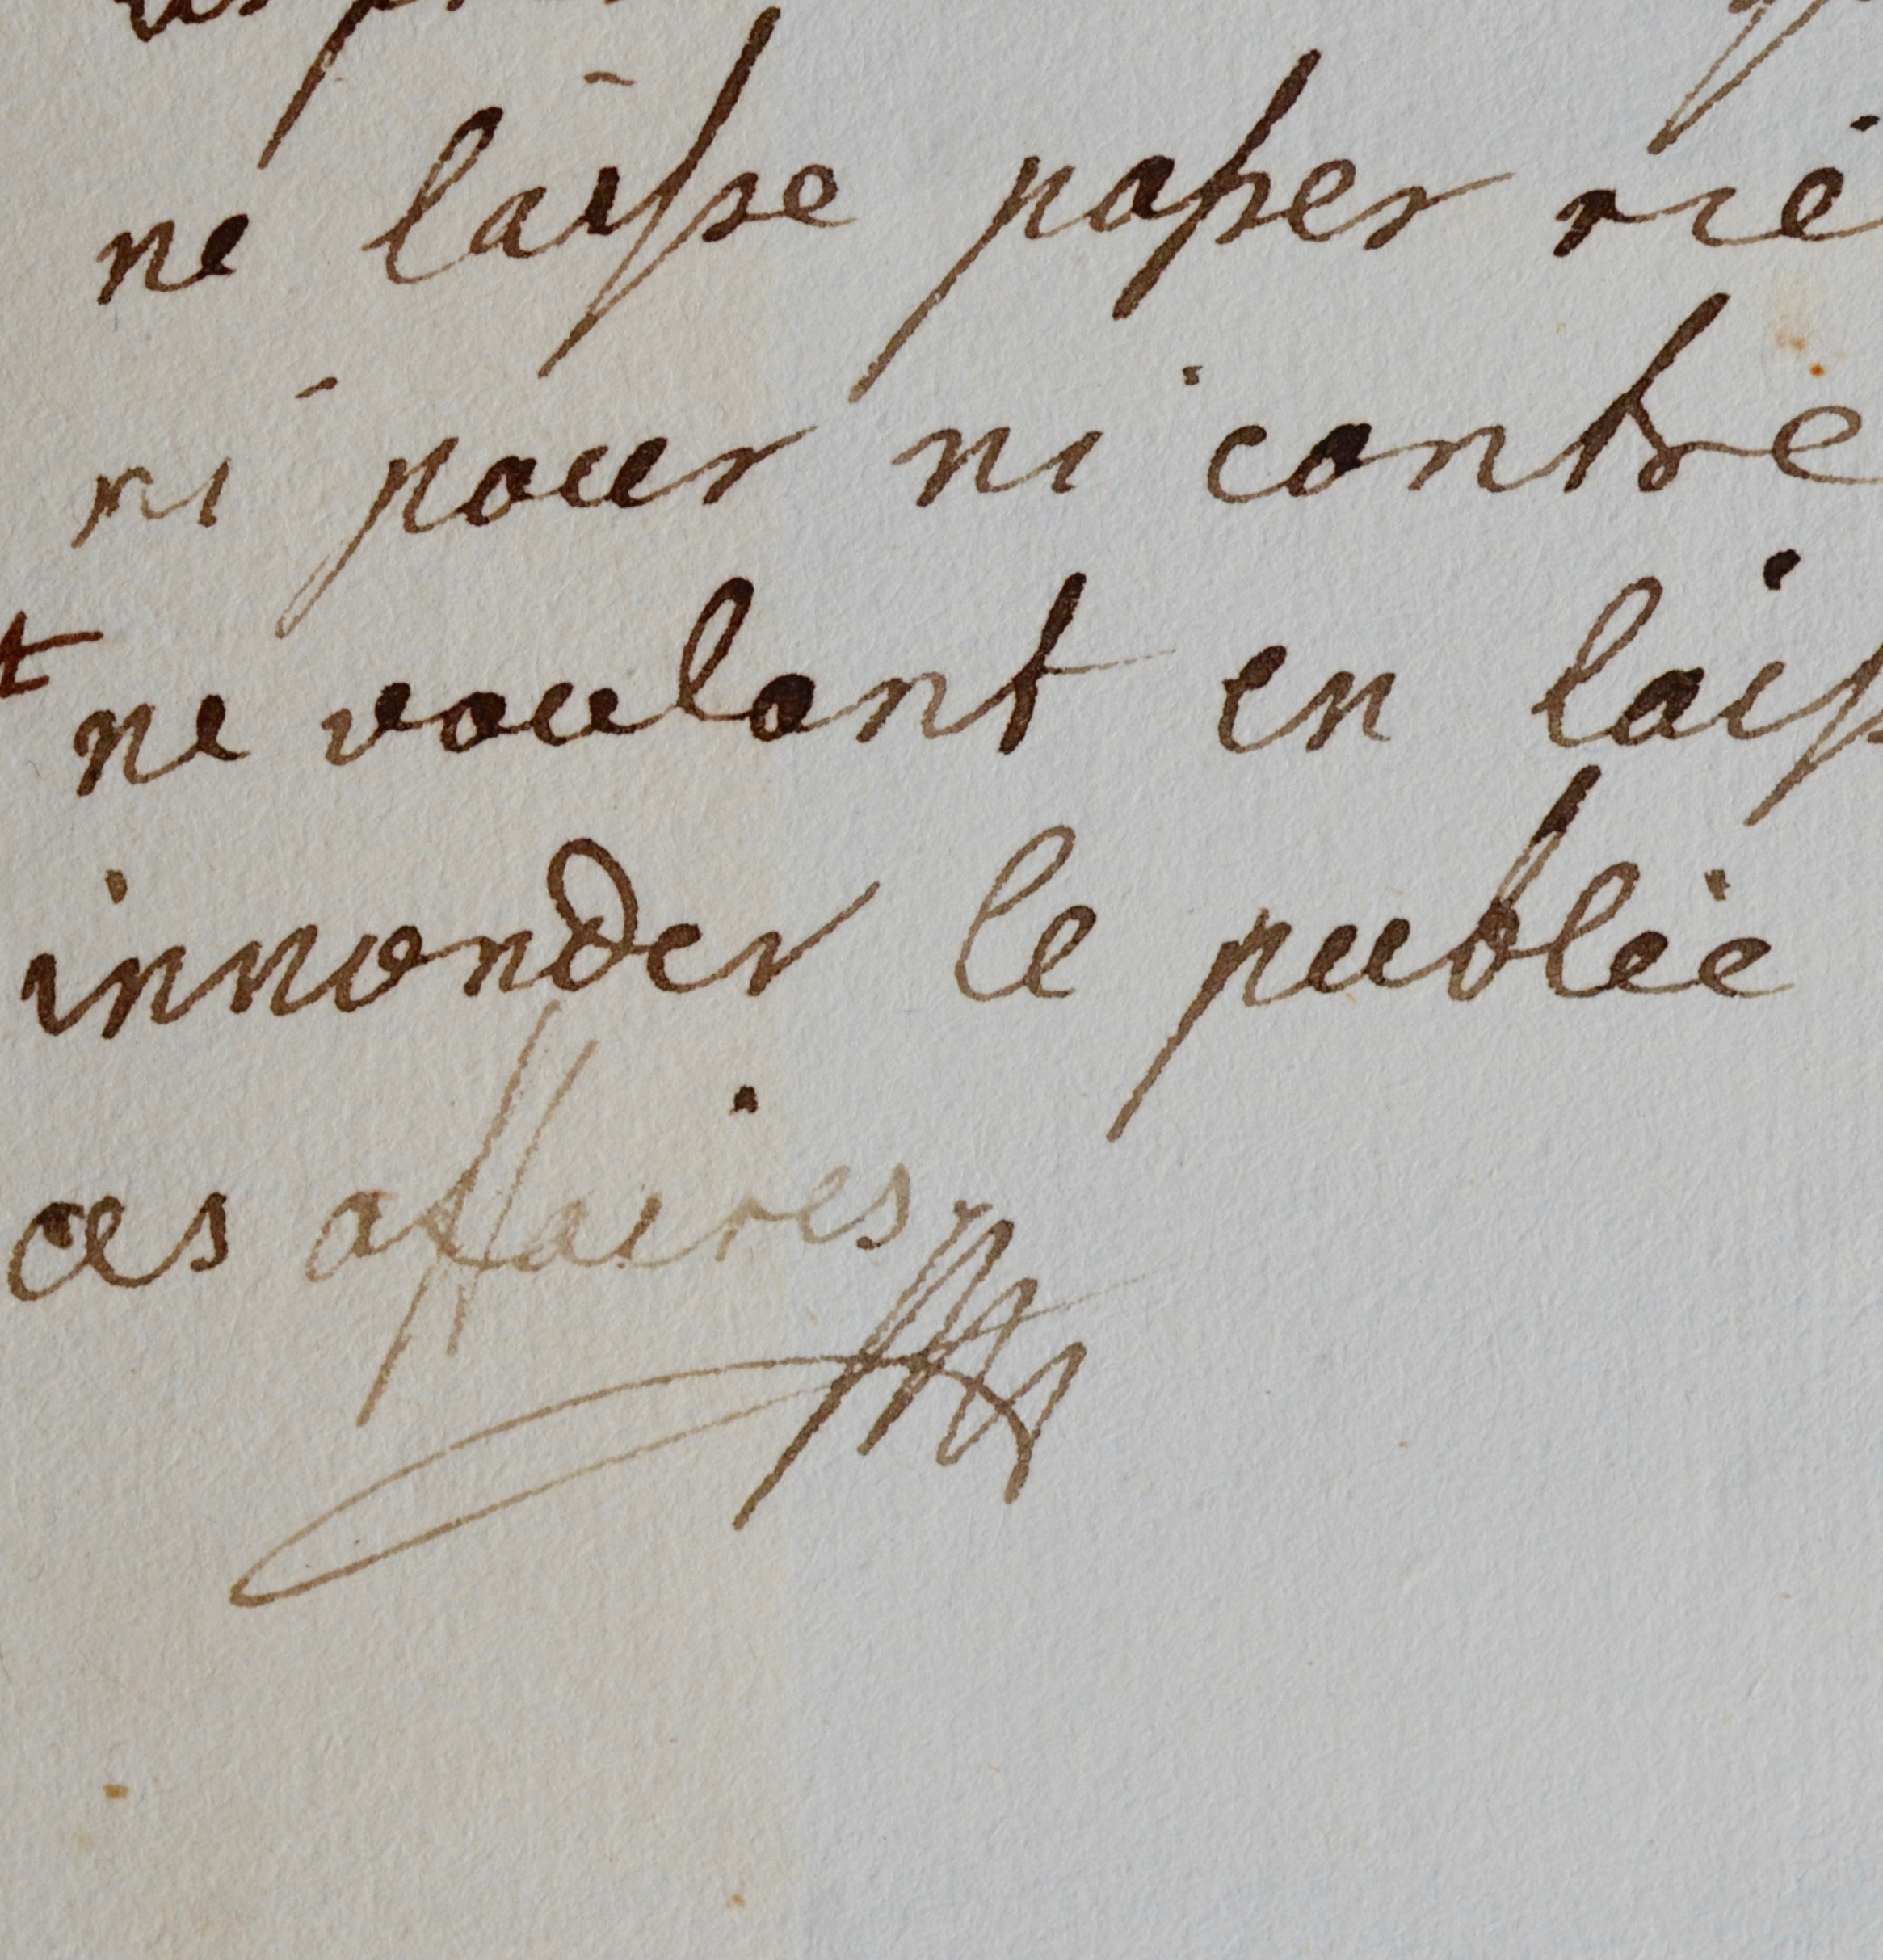 ne laisse passer rie
ni pour ni contre
t ne voulant en laiss
innonder le public
ces affaires.